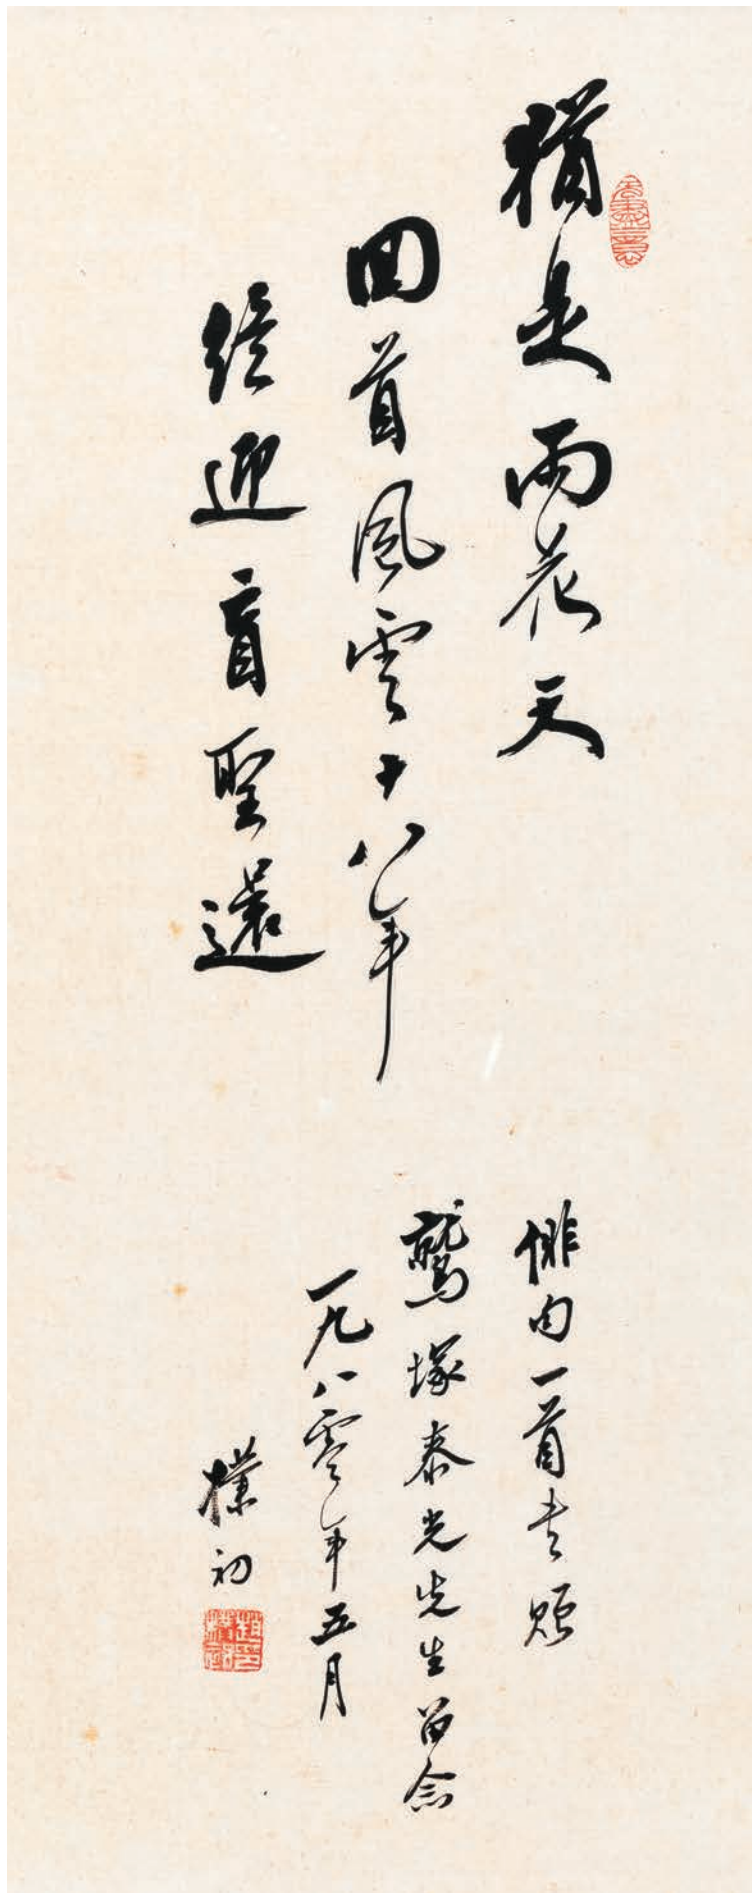 猶是雨花天
回首風雲十八年
終迎盲聖還
俳句一首書贈
鷲塚泰光先生留念
一九八零年五月
樸初
無盡意
趙樸初印